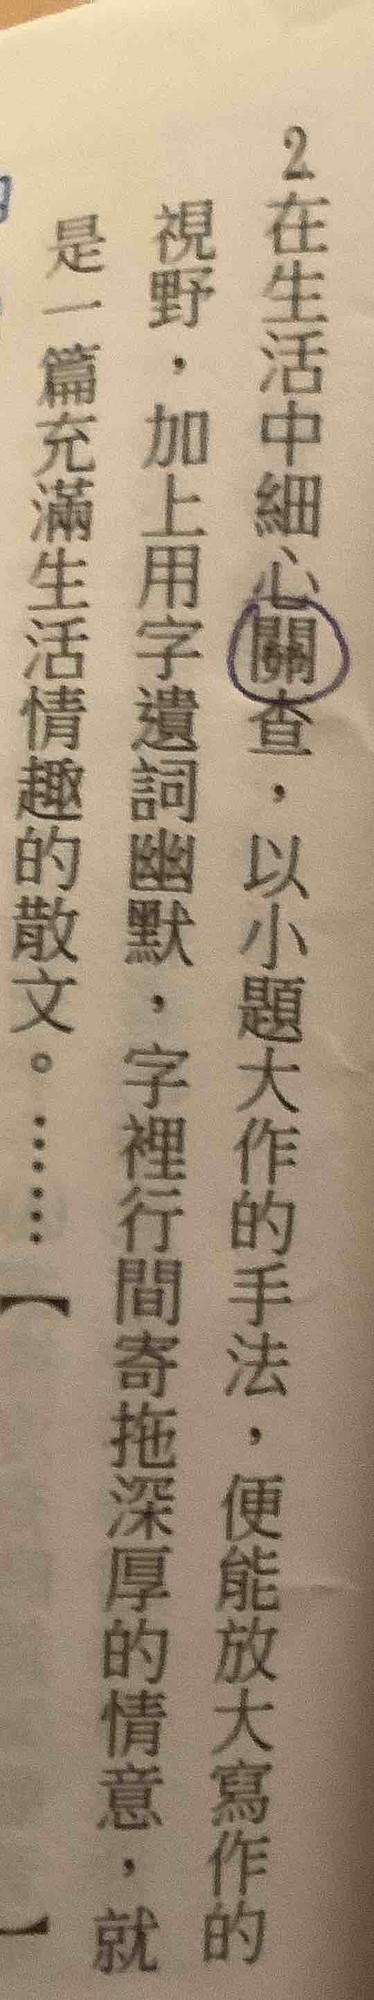 2在生活中細心關查，以小題大作的手法，便能放大寫作的
視野，加上用字遺詞幽默，字裡行間寄拖深厚的情意，就
是一篇充滿生活情趣的散文。……【　】